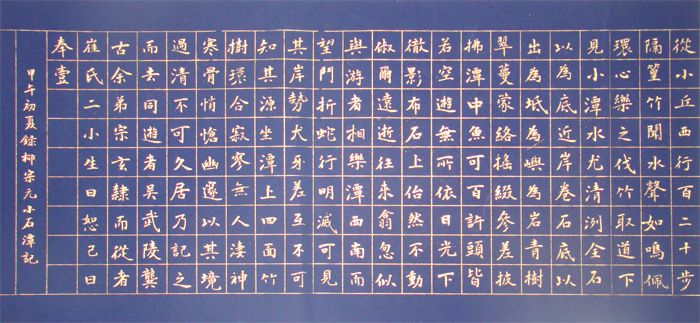 從小丘西行百二十步
隔篁竹聞水聲如鳴佩
環心樂之伐竹取道下
見小潭水尤清冽全石
以為底近岸卷石底以
出為坻為嶼為岩青樹
翠蔓蒙絡搖綴參差披
拂潭中魚可百許頭皆
若空遊無所依日光下
徹影布石上佁然不動
俶爾遠逝往來翕忽似
與游者相樂潭西南而
望鬥折蛇行明滅可見
其岸勢犬牙差互不可
知其源坐潭上四面竹
樹環合寂寥無人淒神
寒骨悄愴幽邃以其境
過清不可久居乃記之
而去同遊者吳武陵龔
古余弟宗玄隸而從者
崔氏二小生曰恕己曰
奉壹
甲午初夏錄柳宗元小石潭記